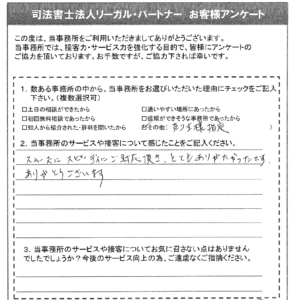 司法書士法人リーガル・パートナー お客様アンケート
この度は、当事務所をご利用いただきましてありがとうございます。
当事務所では、接客力・サービス力を強化する目的で、皆様にアンケートの
ご協力を頂いております。お手数ですが、ご協力下されば幸いです。
1. 数ある事務所の中から、当事務所をお選びいただいた理由にチェックをご記入
下さい。（複数選択可）
□土日の相談ができたから □通いやすい場所にあったから
□初回無料相談であったから □信頼ができそうな事務所であったから
□知人から紹介された・評判を聞いたから その他( 指定 )
2. 当事務所のサービスや接客について感じたことをご記入ください。
スムーズにスピーディにご対応頂き、とてもありがたかったです。
ありがとうございます
3. 当事務所のサービスや接客についてお気に召さない点はありません
でしたでしょうか？今後のサービス向上の為、ご遠慮なくご指摘ください。